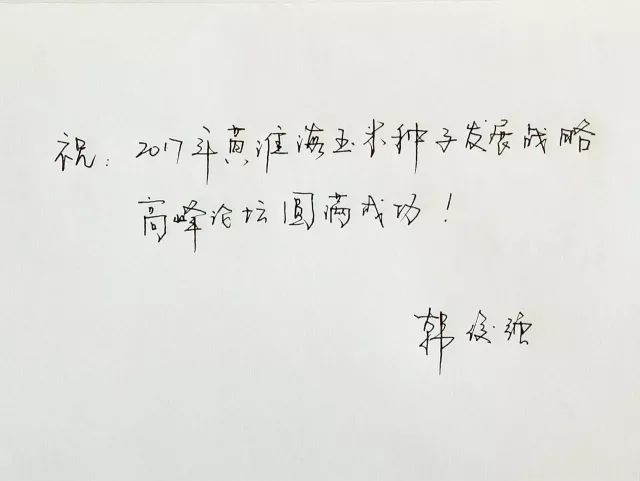 祝：2017年黄淮海玉米种子发展战略
高峰论坛圆满成功！
韩俊强